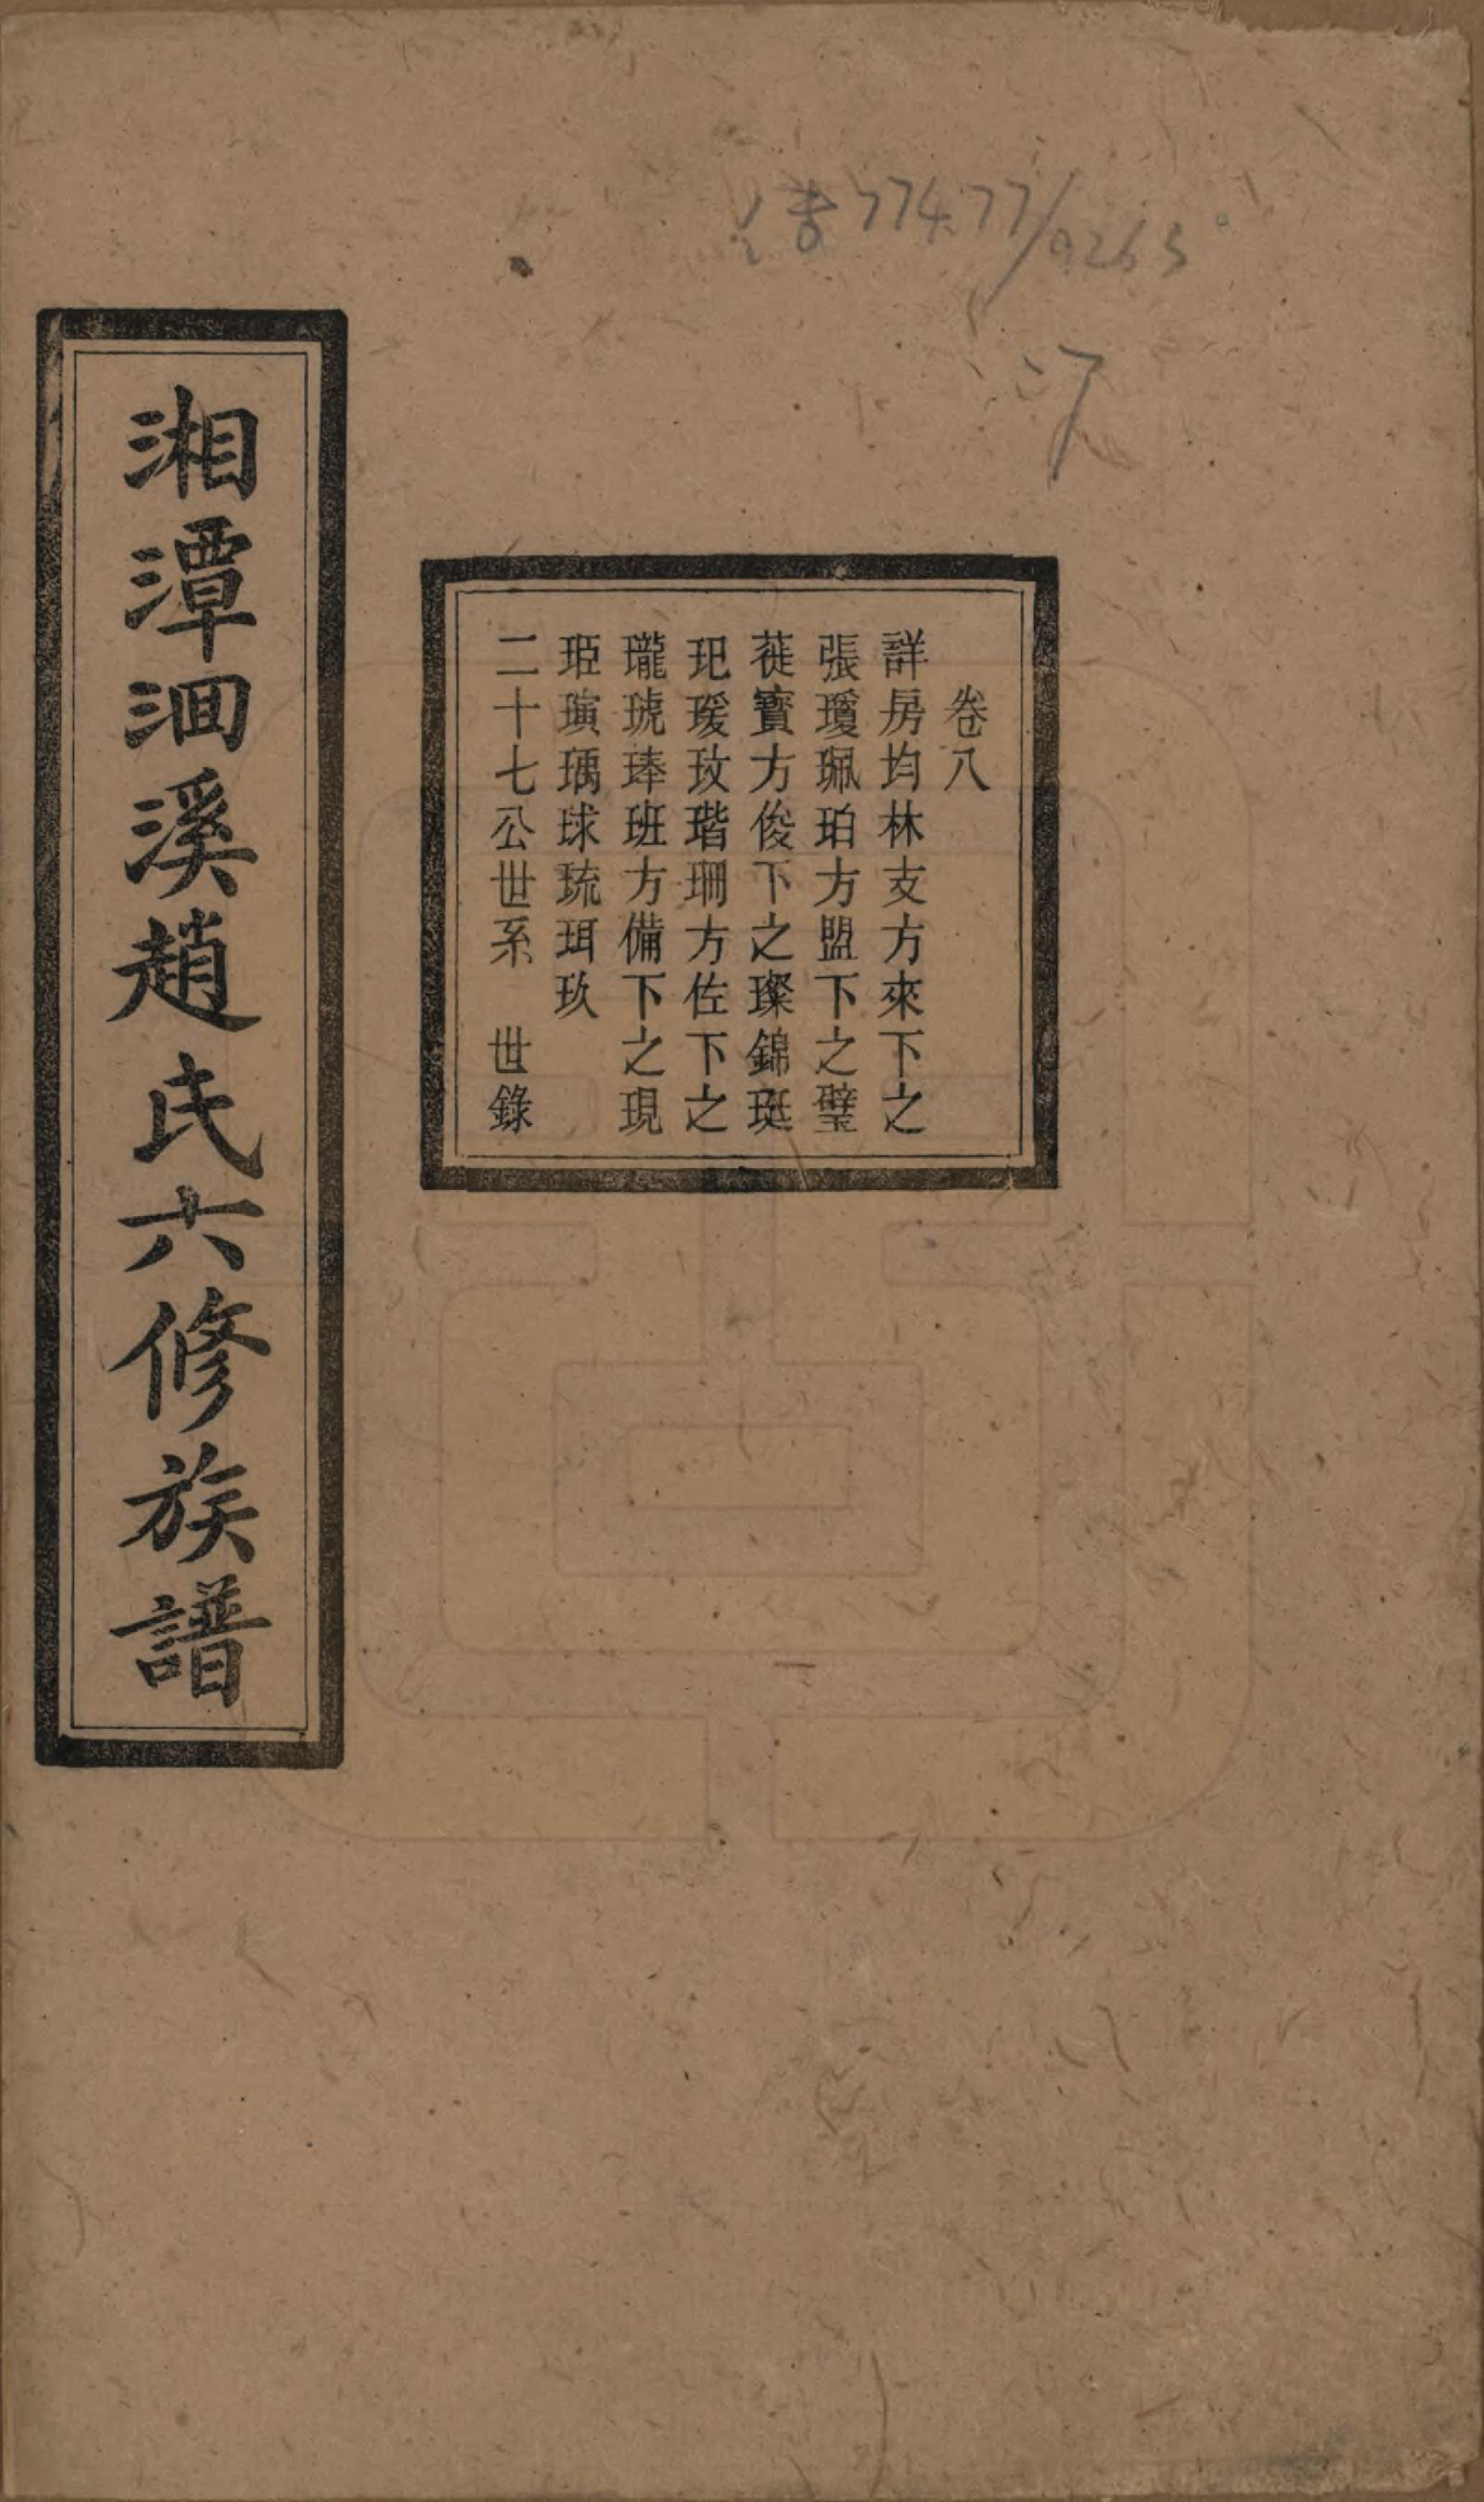 774.77/9265
17
卷八
詳房均林支方來下之
張瓊珮珀方盟下之璧
蓰寶方俊下之璨錦珽
玘瑗玫瑎珊方佐下之
瓏琥琫班方備下之現
珚璌瑀球琉珥玖
二十七公世系 世錄
湘潭洄溪趙氏六修族譜